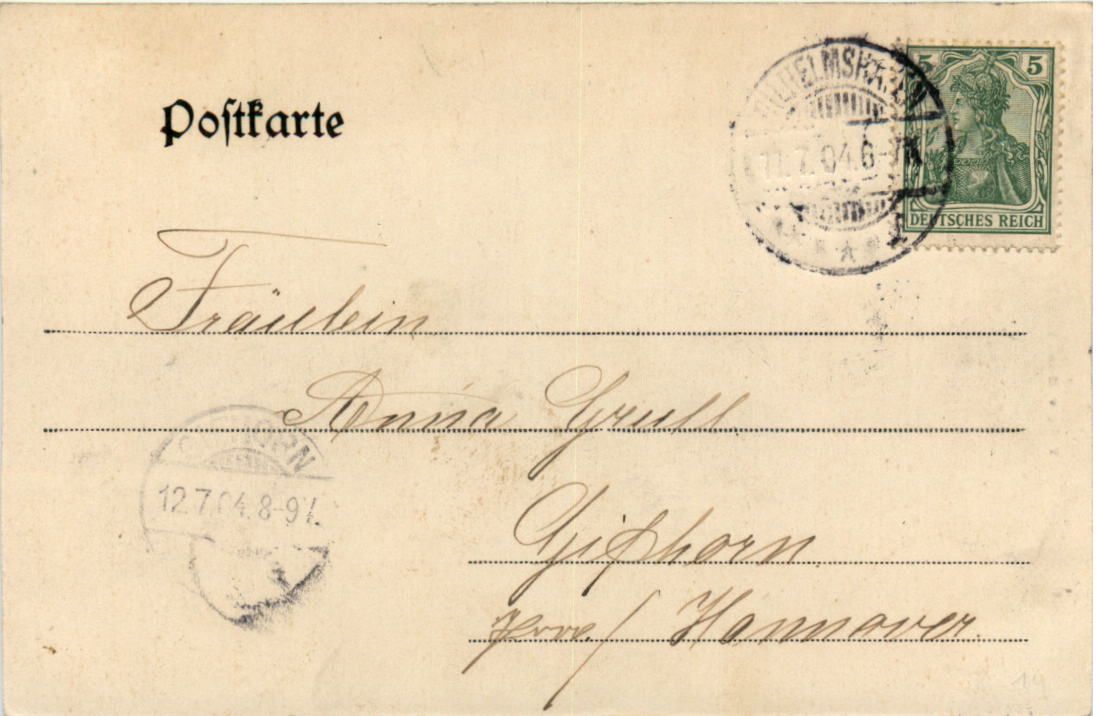 Postkarte
WILHELMSHAVEN
11.7.04.6-7N.
5 5
DEUTSCHES REICH
Fräulein
Anna Grull
GIFHORN
12.7.04.8-9V.
Gifhorn
Prov./ Hannover.
19